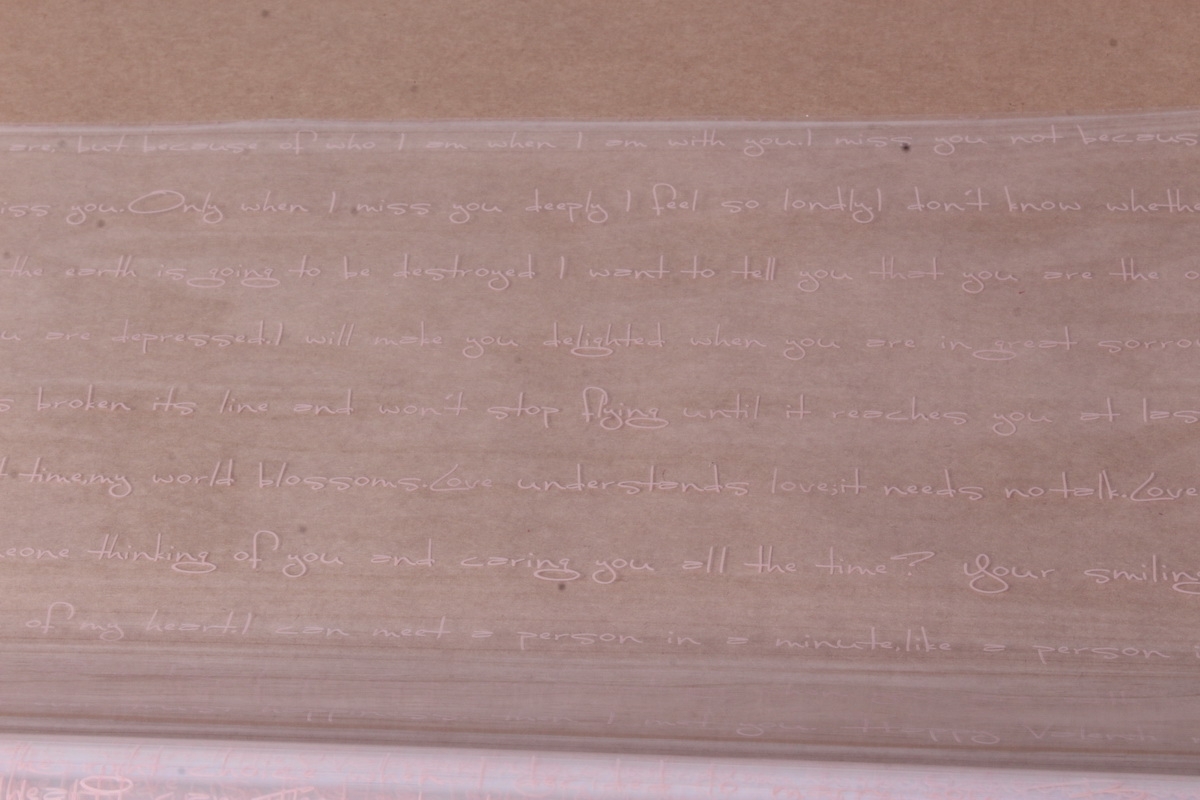 are, but because of who I am when I am with you.I miss you not because
iss you.Only when I miss you deeply I feel so londly,I don't know whethe
the earth is going to be destroyed I want to tell you that you are the o
u are depressed.I will make you delighted when you are in great sorrow
s broken its line and won't stop flying until it reaches you at las
t time,my world blossoms.Love understands love;it needs no talk.Love
eone thinking of you and caring you all the time? Your smiling
of my heart.I can meet a person in a minute,like a person i
I met you Happy Valent